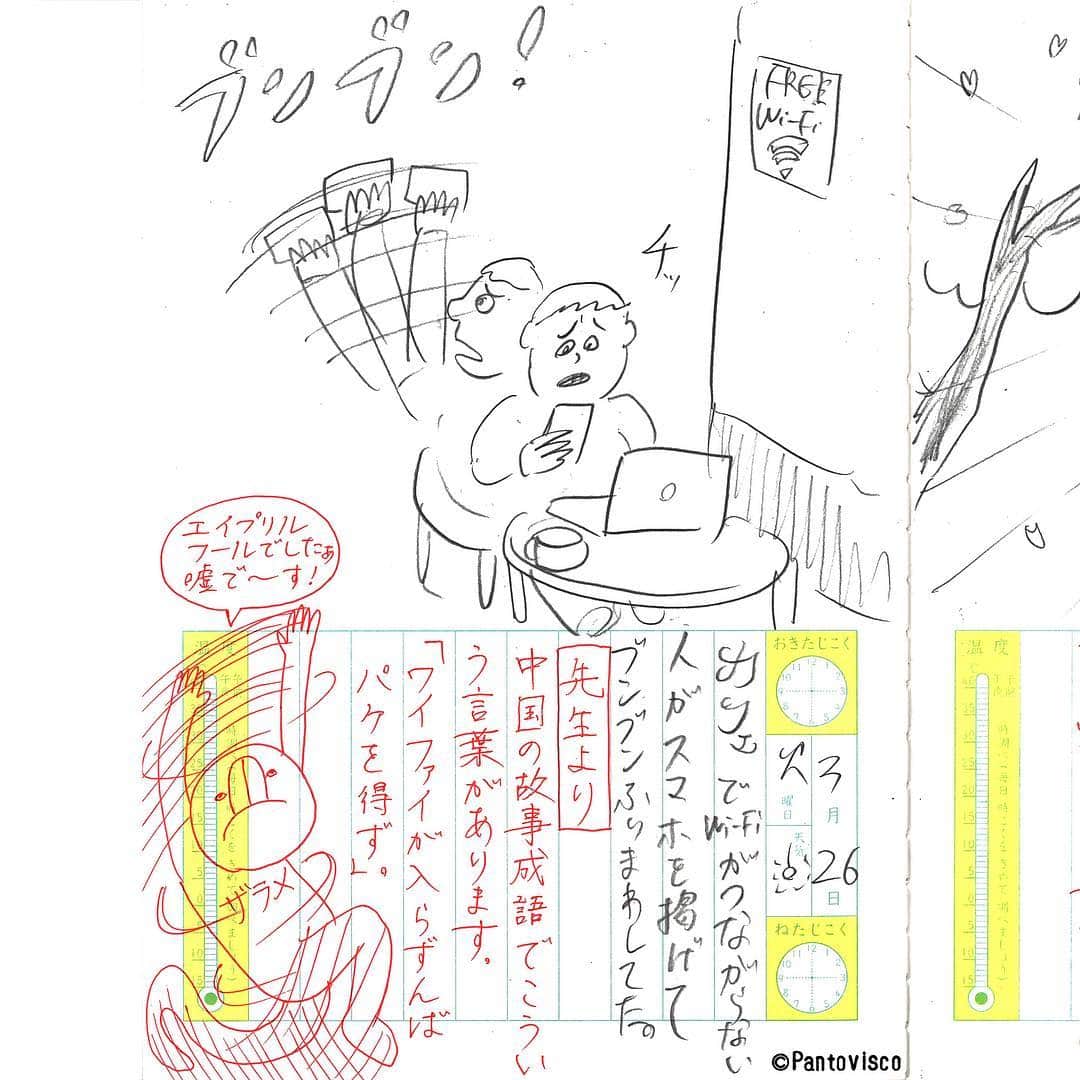 ブンブン!
FREE
Wi-Fi
チッ
おきたじこく
3月
26日
火
曜日
天気
ねたじこく
カフェでWi-Fiがつながらない
人がスマホを掲げて
ブンブンふりまわしてた。
先生より
中国の故事成語でこうい
う言葉があります。
「ワイファイが入らずんば
パケを得ず」。
エイプリル
フールでしたぁ
嘘で〜す!
ザラメ
温度
温度
©Pantovisco